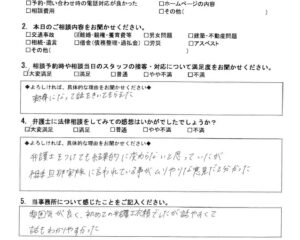 □予約・問い合わせ時の電話対応が良かった □ホームページの内容
□相談費用 □その他( )
2. 本日のご相談内容をお聞かせください。
□交通事故 ☑離婚・親権・養育費等 □男女問題 □建築・不動産問題
□相続・遺言 □借金(債務整理・過払金) □労災 □アスベスト
□その他( )
3. 相談予約時や相談当日のスタッフの接客・対応について満足度をお聞かせください。
☑大変満足 □満足 □普通 □やや不満 □不満
◆よろしければ、具体的な理由をお聞かせください◆
親身になって話をきいてもらえた
4. 弁護士に法律相談をしてみての感想はいかがでしたでしょうか?
☑大変満足 □満足 □普通 □やや不満 □不満
◆よろしければ、具体的な理由をお聞かせください◆
弁護士をつけても結果的に変わらないと思っていたが
相手旦那家族に言われている事がムリやりな意見だと分かった
5. 当事務所について感じたことをご記入ください。
雰囲気が良く、初めての弁護士依頼でしたが話やすくて
話もわかりやすかった